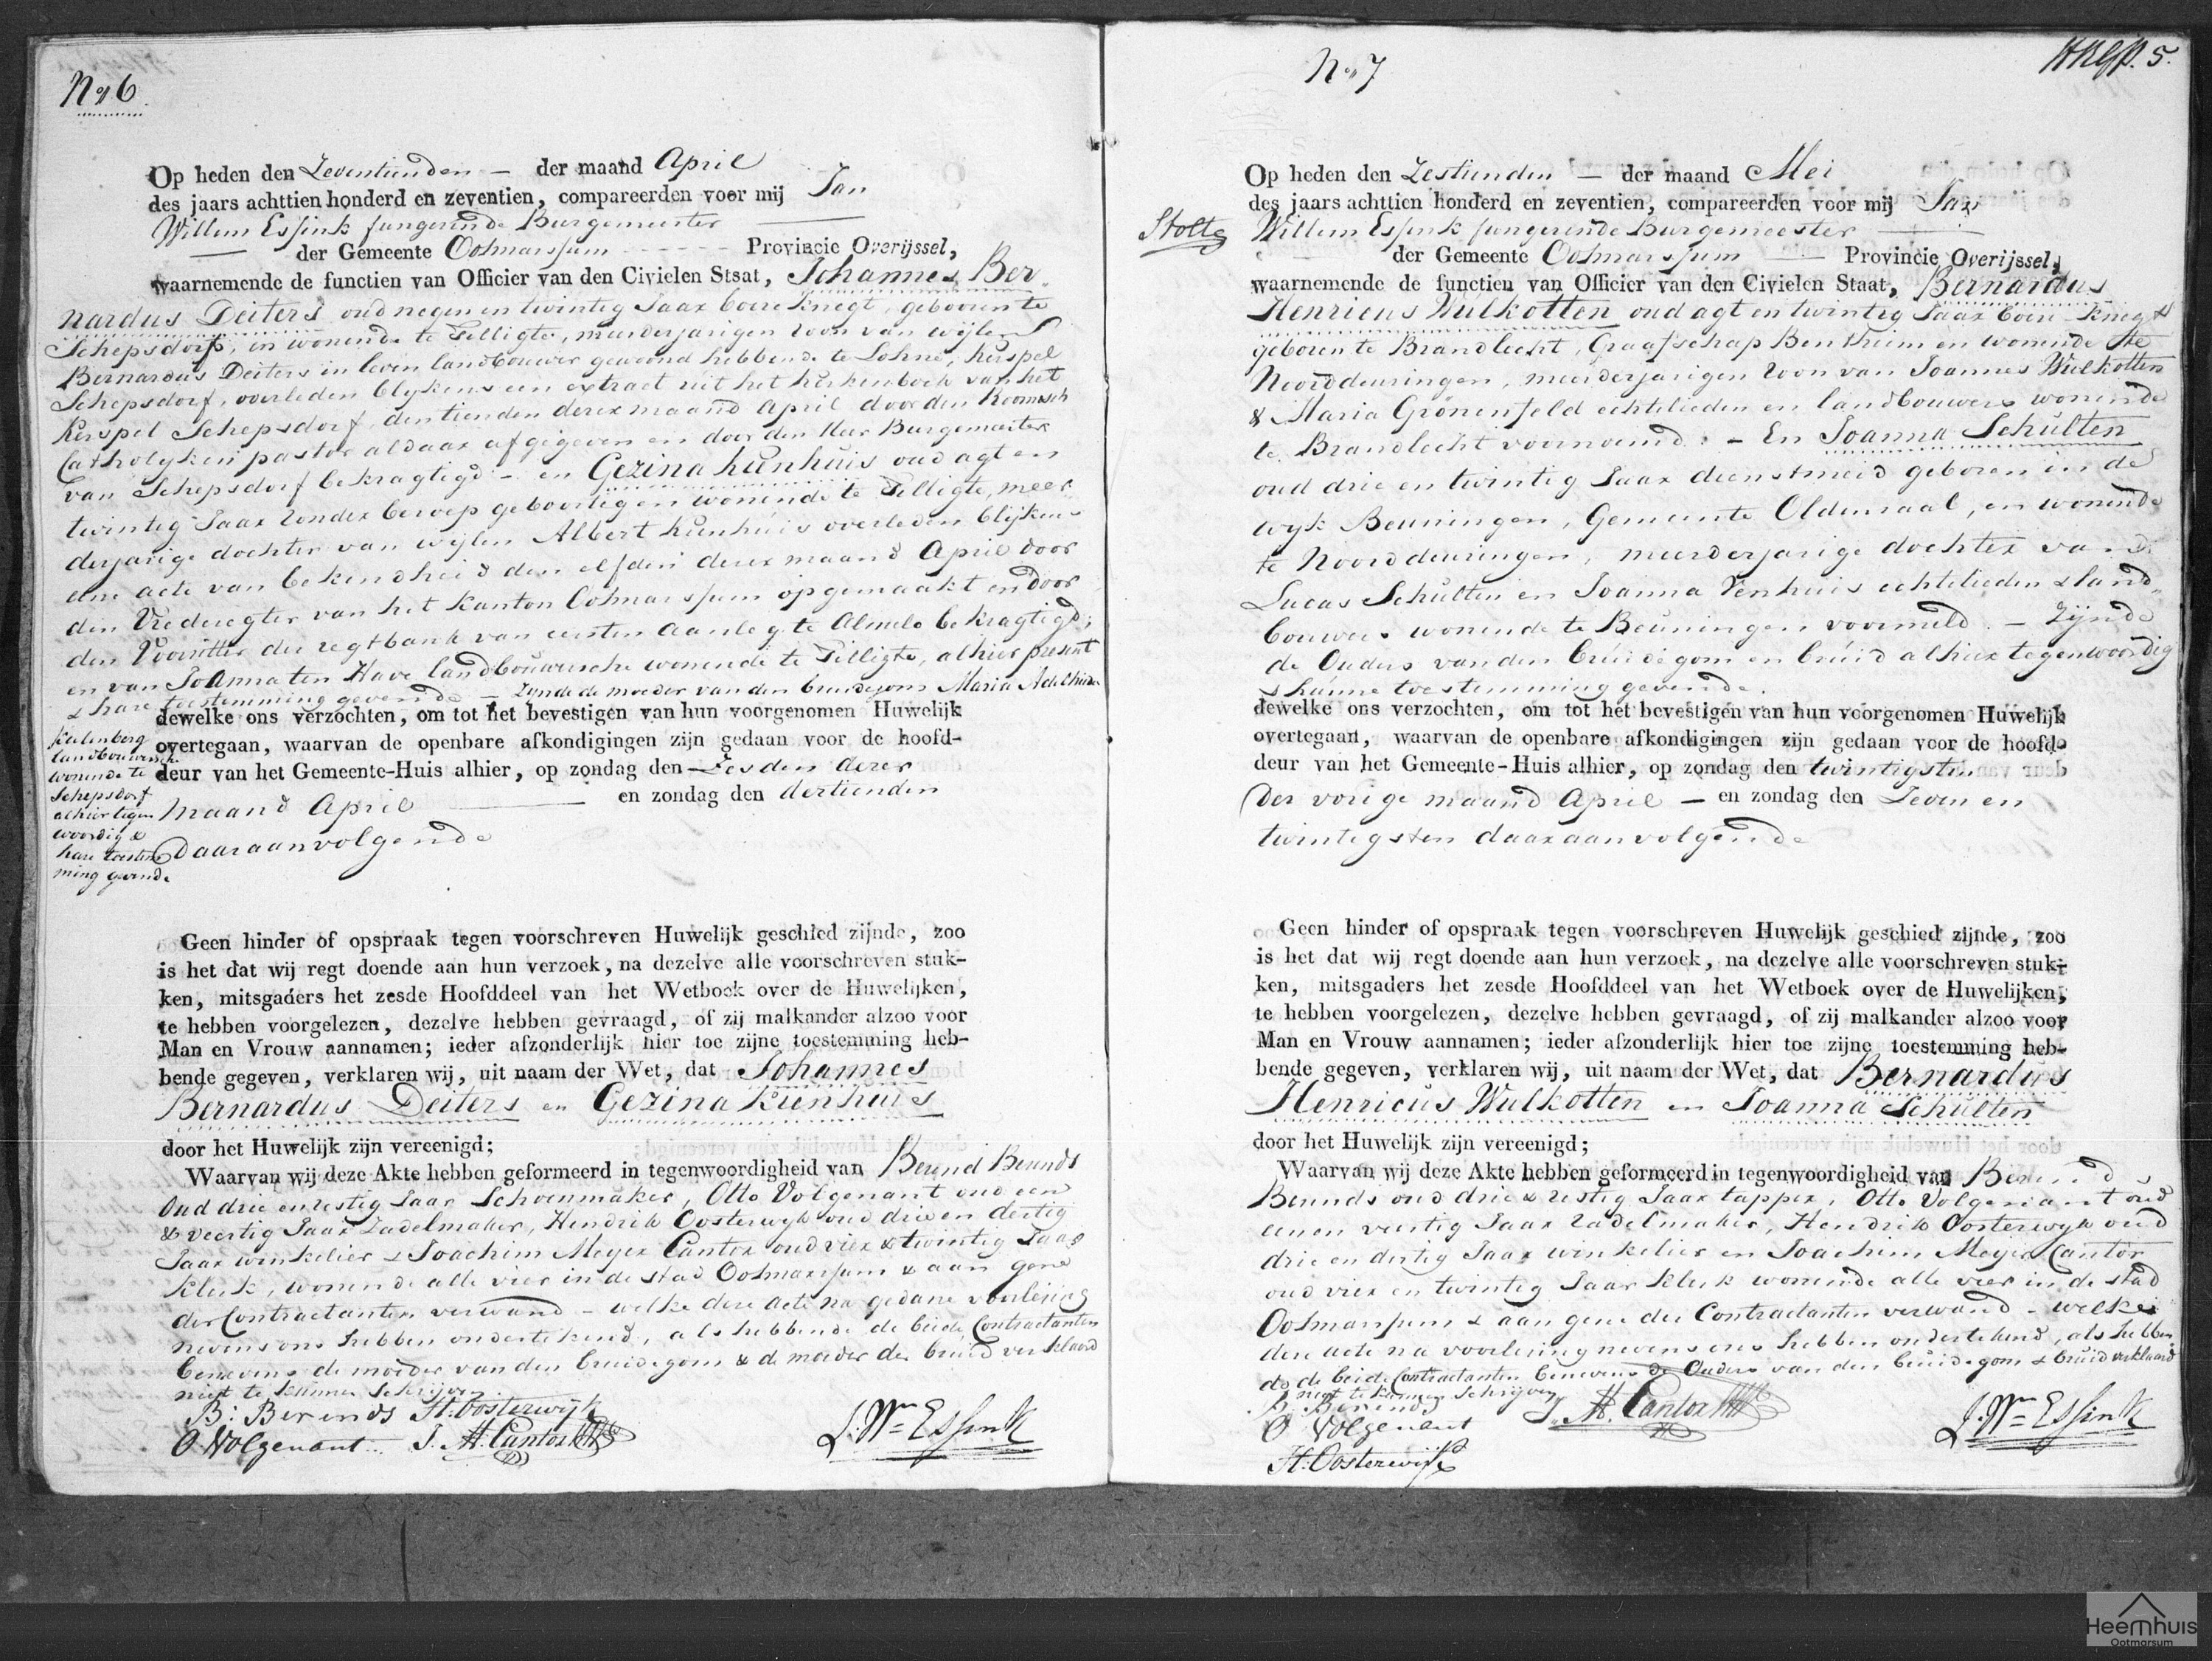 No 6
Op heden den Zeventienden — der maand April
des jaars achttien honderd en zeventien, compareerden voor mij Jan
Willem Essink fungerende Burgemeester
— der Gemeente Ootmarssum - - - - - Provincie Overijssel,
waarnemende de functien van Officier van den Civielen Staat, Johannes Ber-
nardus Deiters oud negen en twintig Jaar boere knegt, gebooren te
Schepsdorf, in wonende te Tilligte, meerderjarigen zoon van wijlen
Bernardus Deiters in leven landbouwer gewoond hebbende te Lohne, kerspel
Schepsdorf, overleden blykens een extract uit het kerkenboek van het
kerspel Schepsdorf, den tienden dezer maand April door den Roomsch
Catholyken pastor aldaar afgegeven en door den Heer Burgemeester
van Schepsdorf bekragtigd - en Gezina Kienhuis oud agt en
twintig Jaar zonder beroep geboortig en wonende te Tilligte, meer-
derjarige dochter van wijlen Albert Kienhuis overleden blijkens
eene acte van bekendheid den elfden dezer maand April door
den Vrederegter van het Kanton Ootmarssum opgemaakt en door
den Voorzitter der regtbank van eersten aanleg te Almelo bekragtigd;
en van Joanna ten Have landbouwersche wonende te Tilligte, alhier present
& hare toestemming gevende — Zynde de moeder van den bruidegom Maria Adelheid
Kulenberg
landbouwersche
wonende te
Schepsdorf
alhier tegen
woordig &
hare toestem
ming gevende
dewelke ons verzochten, om tot het bevestigen van hun voorgenomen Huwelijk
overtegaan, waarvan de openbare afkondigingen zijn gedaan voor de hoofd-
deur van het Gemeente-Huis alhier, op zondag den Zesden dezer
maand April — en zondag den dertienden
daaraanvolgende
Geen hinder of opspraak tegen voorschreven Huwelijk geschied zijnde, zoo
is het dat wij regt doende aan hun verzoek, na dezelve alle voorschreven stuk-
ken, mitsgaders het zesde Hoofddeel van het Wetboek over de Huwelijken,
te hebben voorgelezen, dezelve hebben gevraagd, of zij malkander alzoo voor
Man en Vrouw aannamen; ieder afzonderlijk hier toe zijne toestemming heb-
bende gegeven, verklaren wij, uit naam der Wet, dat Johannes
Bernardus Deiters en Gezina Kienhuis
door het Huwelijk zijn vereenigd;
Waarvan wij deze Akte hebben geformeerd in tegenwoordigheid van Berend Berends
Oud drie en zestig Jaar Schoenmaker, Otto Volgenant oud een
& veertig Jaar Zadelmaker, Hendrik Oosterwyk oud drie en dertig
Jaar winkelier & Joachim Meyer Cantor oud vier & twintig Jaar
klerk, wonende alle vier in de stad Ootmarssum & aan gene
der Contractanten verwand - welke deze acte na gedane voorlezing
nevens ons hebben ondertekend, als hebbende de beide Contractanten
benevens de moeder van den bruidegom & de moeder der bruid verklaard
niet te kunnen Schrijven.
B: Berends H. Oosterwijk
O Volgenant J. M. Cantor
J. Wm Essink
No 7
5.
Stolte
Op heden den Zestienden — der maand Mei
des jaars achttien honderd en zeventien, compareerden voor mij Jan
Willem Essink fungerende Burgemeester
der Gemeente Ootmarssum — Provincie Overijssel,
waarnemende de functien van Officier van den Civielen Staat, Bernardus
Henricus Wulkotten oud agt en twintig Jaar boere knegt
geboren te Brandlecht, Graafschap Bentheim en wonende te
Noorddeuringen, meerderjarigen zoon van Joannes Wulkotten
& Maria Grönenfeld echtelieden en landbouwers wonende
te Brandlecht voornoemd: - En Joanna Schulten
oud drie en twintig Jaar dienstmeid geboren in de
wyk Beuningen, Gemeente Oldenzaal, en wonende
te Noorddeuringen, meerderjarige dochter van
Lucas Schulten en Joanna Venhuis echtelieden & land-
bouwers wonende te Beuningen voormeld. — Zijnde
de Ouders van den bruidegom en bruid alhier tegenwoordig
& hunne toestemming gevende.
dewelke ons verzochten, om tot het bevestigen van hun voorgenomen Huwelijk
overtegaan, waarvan de openbare afkondigingen zijn gedaan voor de hoofd-
deur van het Gemeente-Huis alhier, op zondag den twintigsten
der vorige maand April — en zondag den Zeven en
twintigsten daaraanvolgende
Geen hinder of opspraak tegen voorschreven Huwelijk geschied zijnde, zoo
is het dat wij regt doende aan hun verzoek, na dezelve alle voorschreven stuk-
ken, mitsgaders het zesde Hoofddeel van het Wetboek over de Huwelijken,
te hebben voorgelezen, dezelve hebben gevraagd, of zij malkander alzoo voor
Man en Vrouw aannamen; ieder afzonderlijk hier toe zijne toestemming heb-
bende gegeven, verklaren wij, uit naam der Wet, dat Bernardus
Henricus Wulkotten en Joanna Schulten
door het Huwelijk zijn vereenigd;
Waarvan wij deze Akte hebben geformeerd in tegenwoordigheid van Berend
Berends oud drie & zestig Jaar tapper, Otto Volgenant oud
een en veertig Jaar zadelmaker, Hendrik Oosterwyk oud
drie en dertig Jaar winkelier en Joachim Meyer Cantor
oud vier en twintig Jaar klerk wonende alle vier in de stad
Ootmarssum & aan gene der Contractanten verwand - welke
deze acte na voorlezing nevens ons hebben ondertekend, als hebben
de de beide Contractanten benevens de Ouders van den bruidegom & bruid verklaard
niet te kunnen Schrijven
B. Berends J. M. Cantor
O Volgenant
H. Oosterwijk
J. Wm Essink
Heemhuis
Ootmarsum